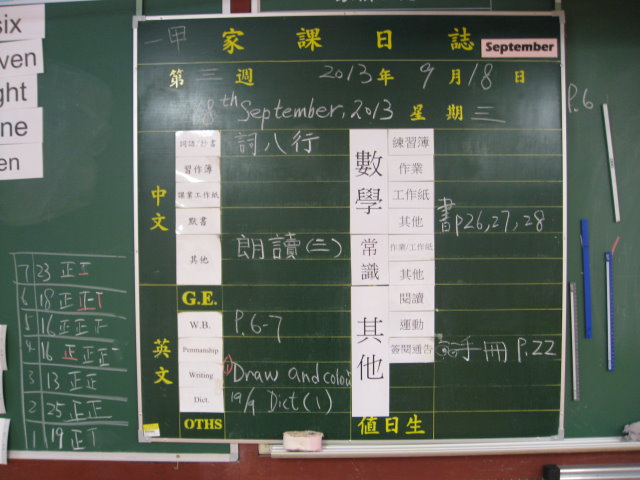 six
ven
ght
ne
en
一甲 家課日誌 September
第三週 2013年9月18日
18th September, 2013 星期三
中文
詞語/抄書 詞八行
習作簿
課業工作紙
默書
其他 朗讀(三)
英文
G.E.
W.B. P.6-7
Penmanship
Writing ① Draw and colour
Dict. 19/9 Dict (1)
OTHS
數學
練習簿
作業
工作紙
其他 書P26,27,28
常識
作業/工作紙
其他
其他
閱讀
運動
簽閱通告 手冊 P.22
值日生
P.6
7 23 正
6 18 正
5 16 正正正
4 16 正正正
3 13 正正
2 25 正正
1 19 正